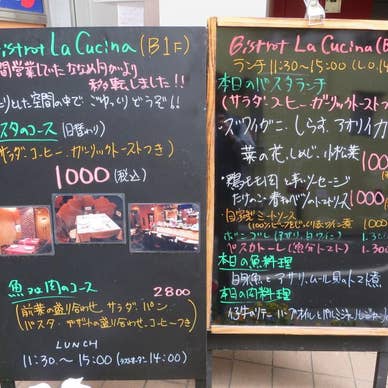 Bistrot La Cucina (B1F)
間営業していたななめ向かいより
移転しました!!
とした空間の中で ごゆっくり どうぞ!!
スタのコース (日替わり)
サラダ、コーヒー、ガーリックトーストつき)
1000 (税込)
魚 or 肉のコース 2800
(前菜の盛り合わせ、サラダ、パン
パスタ、デザートの盛り合わせ、コーヒーつき)
LUNCH
11:30 ~ 15:00 (ラストオーダー 14:00)
Bistrot La Cucina (B
ランチ 11:30~15:00 (L.O.14
本日のパスタランチ
(サラダ・コーヒー・ガーリックトースト
・ズワイガニ、しらす、アオリイカ
菜の花、しめじ、小松菜
1000
・鶏モモ肉
ソーセージ
たけのこ・春キャベツ
1000
・自家製ミートソース
ボンゴレ
1,300
ペスカトーレ(魚介トマト) 1,300
本日の魚料理
白身魚とアサリ、ムール貝のトマト煮
本日の肉料理